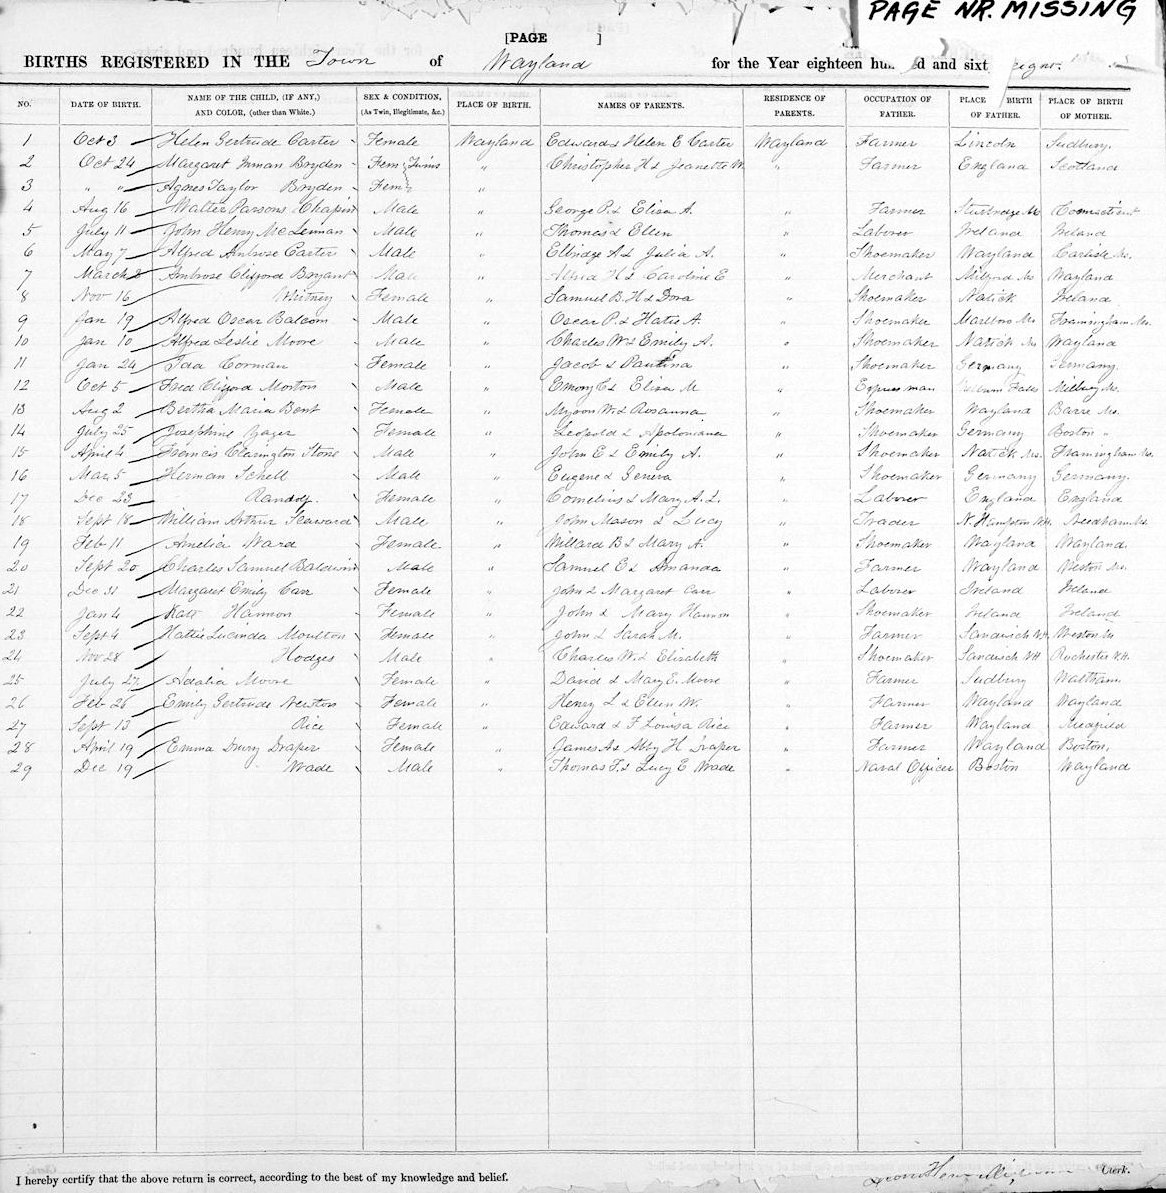 PAGE NR. MISSING
[PAGE ]
BIRTHS REGISTERED IN THE Town of Wayland for the Year eighteen hundred and sixty eight.
NO. DATE OF BIRTH. NAME OF THE CHILD, (IF ANY,) AND COLOR, (other than White.) SEX & CONDITION, (As Twin, Illegitimate, &c.) PLACE OF BIRTH. NAMES OF PARENTS. RESIDENCE OF PARENTS. OCCUPATION OF FATHER. PLACE BIRTH OF FATHER. PLACE OF BIRTH OF MOTHER.
1 Oct 3 Helen Gertrude Carter Female Wayland Edward & Helen E Carter Wayland Farmer Lincoln Sudbury.
2 Oct 24 Margaret Inman Bryden Fem Twins " Christopher H & Jeanette W. " Farmer England Scotland
3 " " Agnes Taylor Bryden Fem "
4 Aug 16 Walter Parsons Chapin Male " George P. & Eliza A. " Farmer Connecticut
5 July 11 John Henry McLennan Male " Thomas & Ellen " Laborer Ireland Ireland
6 May 7 Alfred Ambrose Carter Male " Elbridge A & Julia A. " Shoemaker Wayland Carlisle Ms.
7 March 2 Ambrose Clifford Bryant Male " Alfred H & Caroline E Merchant Milford Ms Wayland
8 Nov 16 Whitney Female " Samuel B. H & Dora " Shoemaker Natick Ireland
9 Jan 19 Alfred Oscar Balcom Male " Oscar P. & Hatie A. " Shoemaker Marlboro Ms. Framingham Ms.
10 Jan 10 Alfred Leslie Moore Male " Charles W & Emily A. " Shoemaker Natick Ms Wayland
11 Jan 24 Ida Corman Female " Jacob & Paulina " Shoemaker Germany Germany.
12 Oct 5 Fred Clifford Morton Male " Emory C & Eliza M " Express man Falls Ms.
13 Aug 2 Bertha Maria Bent Female " Myron W. & Rosanna " Shoemaker Wayland Barre Ms.
14 July 25 Josephine Zager Female " Leopold & " Shoemaker Germany Boston "
15 April 4 Francis Clarington Stone Male " John E & Emily A. " Shoemaker Natick Ms. Framingham Ms.
16 Mar 5 Herman Schell Male " Eugene & Geneva " Shoemaker Germany Germany.
17 Dec 23 Female " Cornelius & Mary A. L. " Laborer England England
18 Sept 18 William Arthur Seaward Male " John Mason & Lucy " Trader N. Hampton NH. Needham Ms
19 Feb 11 Amelia Ward Female. " Willard B & Mary A. " Shoemaker Wayland Wayland.
20 Sept 20 Charles Samuel Baldwin Male " Samuel E & Amanda " Farmer Wayland Weston Ms.
21 Dec 31 Margaret Emily Carr Female " John & Margaret Carr " Laborer Ireland Ireland
22 Jan 4 Kate Hannon Female " John & Mary Hannon " Shoemaker Ireland Ireland
23 Sept 4 Hattie Lucinda Moulton Female " John & Sarah M. " Farmer Sandwich NH. Weston Ms
24 Nov 28 Hodges Male " Charles W. & Elizabeth " Shoemaker Sandwich NH Rochester N.H.
25 July 27. Adalia Moore Female " David & Mary E. Moore " Farmer Sudbury Waltham.
26 Feb 26 Emily Gertrude Weston Female " Henry L & Ellen W. " Farmer Wayland Wayland
27 Sept 13 Rice Female " Edward & F Louisa Rice " Farmer Wayland Medfield
28 April 19 Emma Drury Draper Female " James A & Abby H Draper " Farmer Wayland Boston,
29 Dec 19 Wade Male " Thomas F. & Lucy E Wade " Naval Officer Boston Wayland
I hereby certify that the above return is correct, according to the best of my knowledge and belief. Clerk.